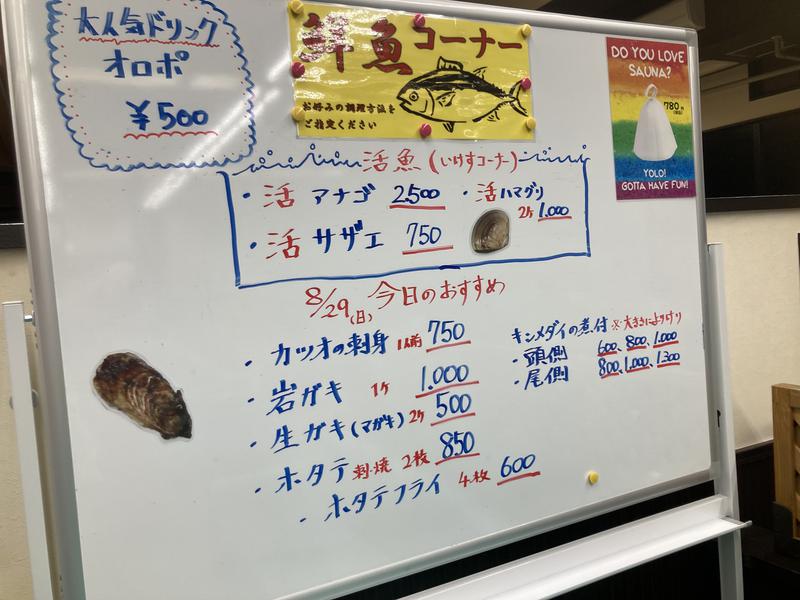 大人気ドリンク
オロポ
¥500
鮮魚コーナー
お好みの調理方法を
ご指定ください
DO YOU LOVE
SAUNA?
780円
YOLO!
GOTTA HAVE FUN!
活魚(いけすコーナー)
・活 アナゴ 2.500
・活ハマグリ
2ケ 1.000
・活 サザエ 750
8/29(日) 今日のおすすめ
・カツオの刺身 1人前 750
・岩ガキ 1ケ 1.000
・生ガキ(マガキ) 2ケ 500
・ホタテ 刺・焼 2枚 850
・ホタテフライ 4枚 600
キンメダイの煮付 ※大きさによりけり
・頭側 600、800、1.000
・尾側 800、1.000、1.300